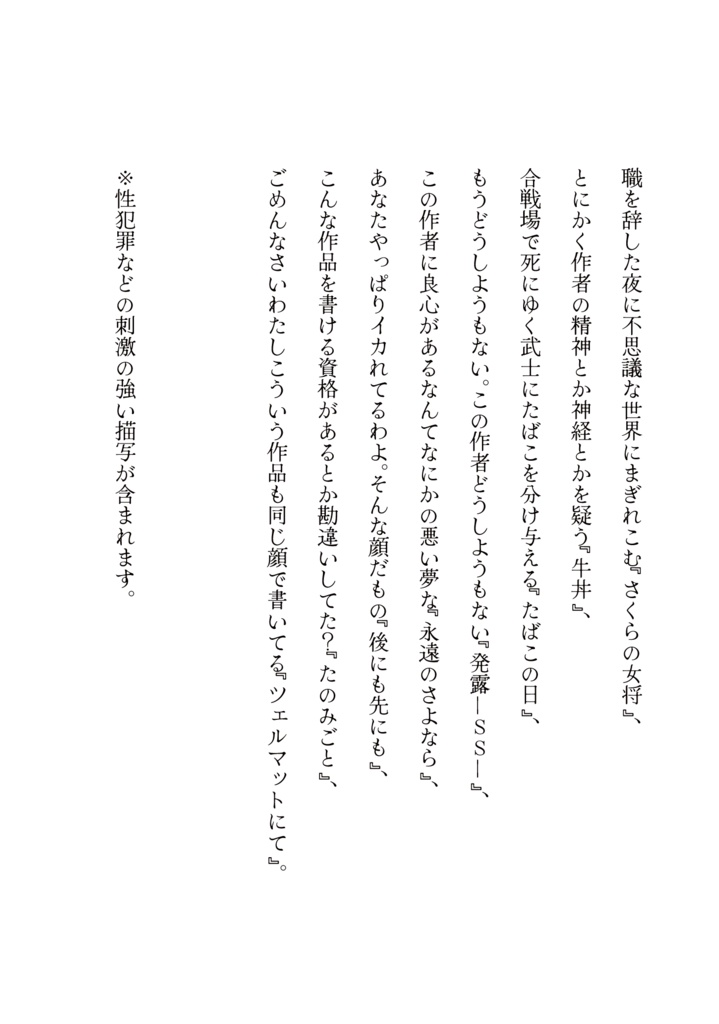 職を辞した夜に不思議な世界にまぎれこむ『さくらの女将』、
とにかく作者の精神とか神経とかを疑う『牛丼』、
合戦場で死にゆく武士にたばこを分け与える『たばこの日』、
もうどうしようもない。この作者どうしようもない『発露―ＳＳ―』、
この作者に良心があるなんてなにかの悪い夢な『永遠のさよなら』、
あなたやっぱりイカれてるわよ。そんな顔だもの『後にも先にも』、
こんな作品を書ける資格があるとか勘違いしてた？『たのみごと』、
ごめんなさいわたしこういう作品も同じ顔で書いてる『ツェルマットにて』。
※性犯罪などの刺激の強い描写が含まれます。